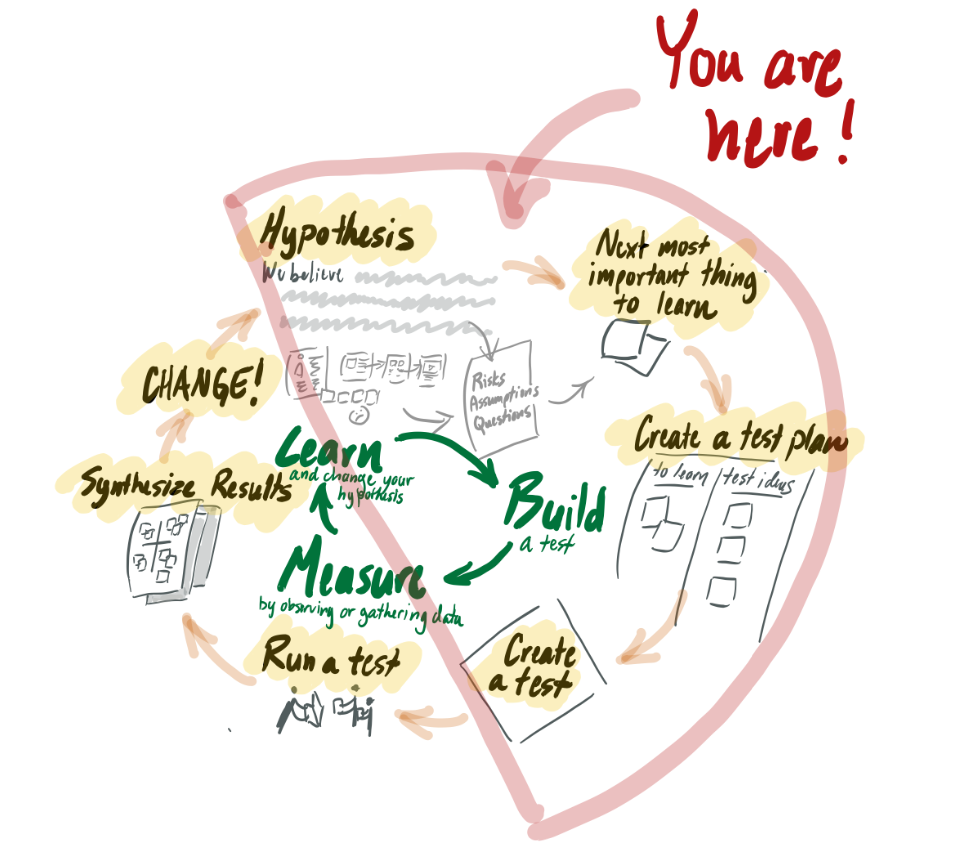 You are
here!
Hypothesis
We believe
Next most
important thing
to learn
Risks
Assumptions
Questions
CHANGE!
Create a test plan
to learn
test ideas
Learn
and change your
hypothesis
Synthesize Results
Build
a test
Measure
by observing or gathering data
Create
a test
Run a test